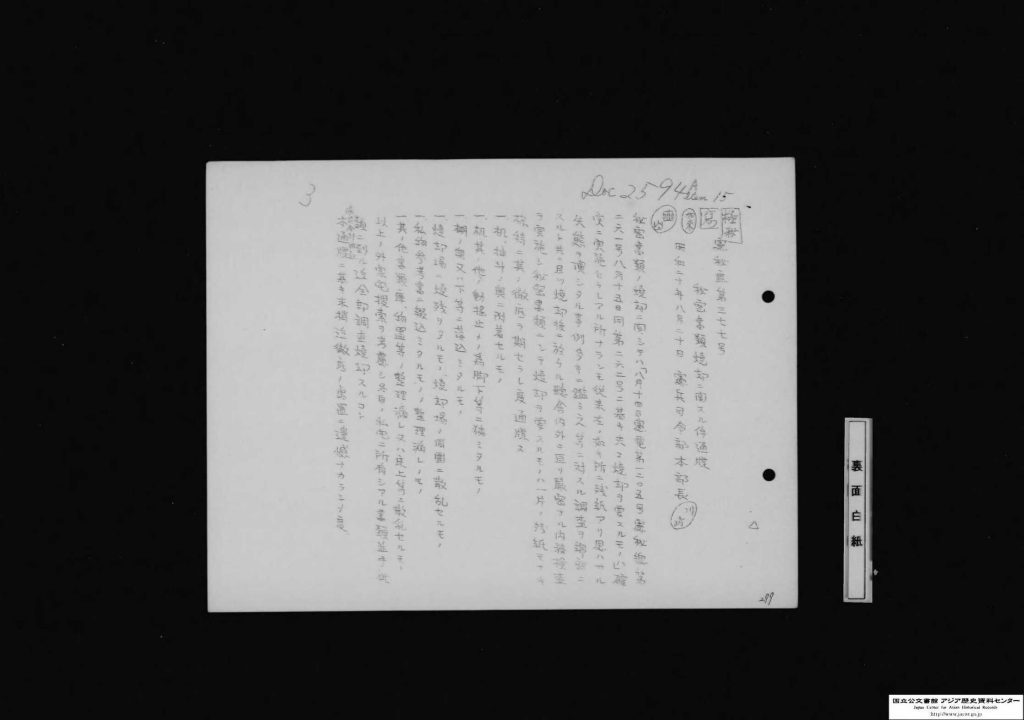 Doc 2594 A Item 15
3
極秘
写
憲秘庶第三七七号
秘密書類焼却ニ関スル件通牒
昭和二十年八月二十日 憲兵司令部本部長 川崎
秘密書類ノ焼却ニ関シテハ八月十四日憲電第一二〇五号憲秘
二六一号八月十五日同第二六二号ニ基キ夫々焼却ヲ要スルモノハ確
実ニ実施セラレアル所ナランモ従来左ノ如キ所ニ残紙アリ思ハサル
失態ヲ演シタル事例多キニ鑑ミ又等ニ対スル調査ヲ
スルト共ニ且ツ焼却後ニ於テハ庁舎内外ニ亘リ厳密ナル内務検査
ヲ実施シ秘密書類ニシテ焼却ヲ要スルモノハ一片ノ残紙モナキ
様特ニ其ノ徹底ヲ期セラレ度通牒ス
一、机ノ抽斗ノ奥ニ附着セルモノ
一、机其ノ他ノ動揺止メノ為脚下等ニ挿ミタルモノ
一、棚ノ奥又ハ下等ニ落込ミタルモノ
一、焼却場ニ焼残リタルモノ、焼却場ノ周囲ニ散乱セルモノ
一、私物参考書ニ綴込ミタルモノノ整理漏レノモノ
一、其ノ他書庫、倉庫、物置等ノ整理漏レ又ハ床上等ニ散乱セルモノ
以上ノ外家宅捜索ヲ考慮シ各自ノ私宅ニ所有シアル書類並手帳
類ニ到ル迄全部調査焼却スルコト
本通牒ニ基キ末梢迄徹底ノ処置ニ遺憾ナカランヲ度
△
289
裏面白紙
国立公文書館 アジア歴史資料センター
Japan Center for Asian Historical Records
http://www.jacar.go.jp